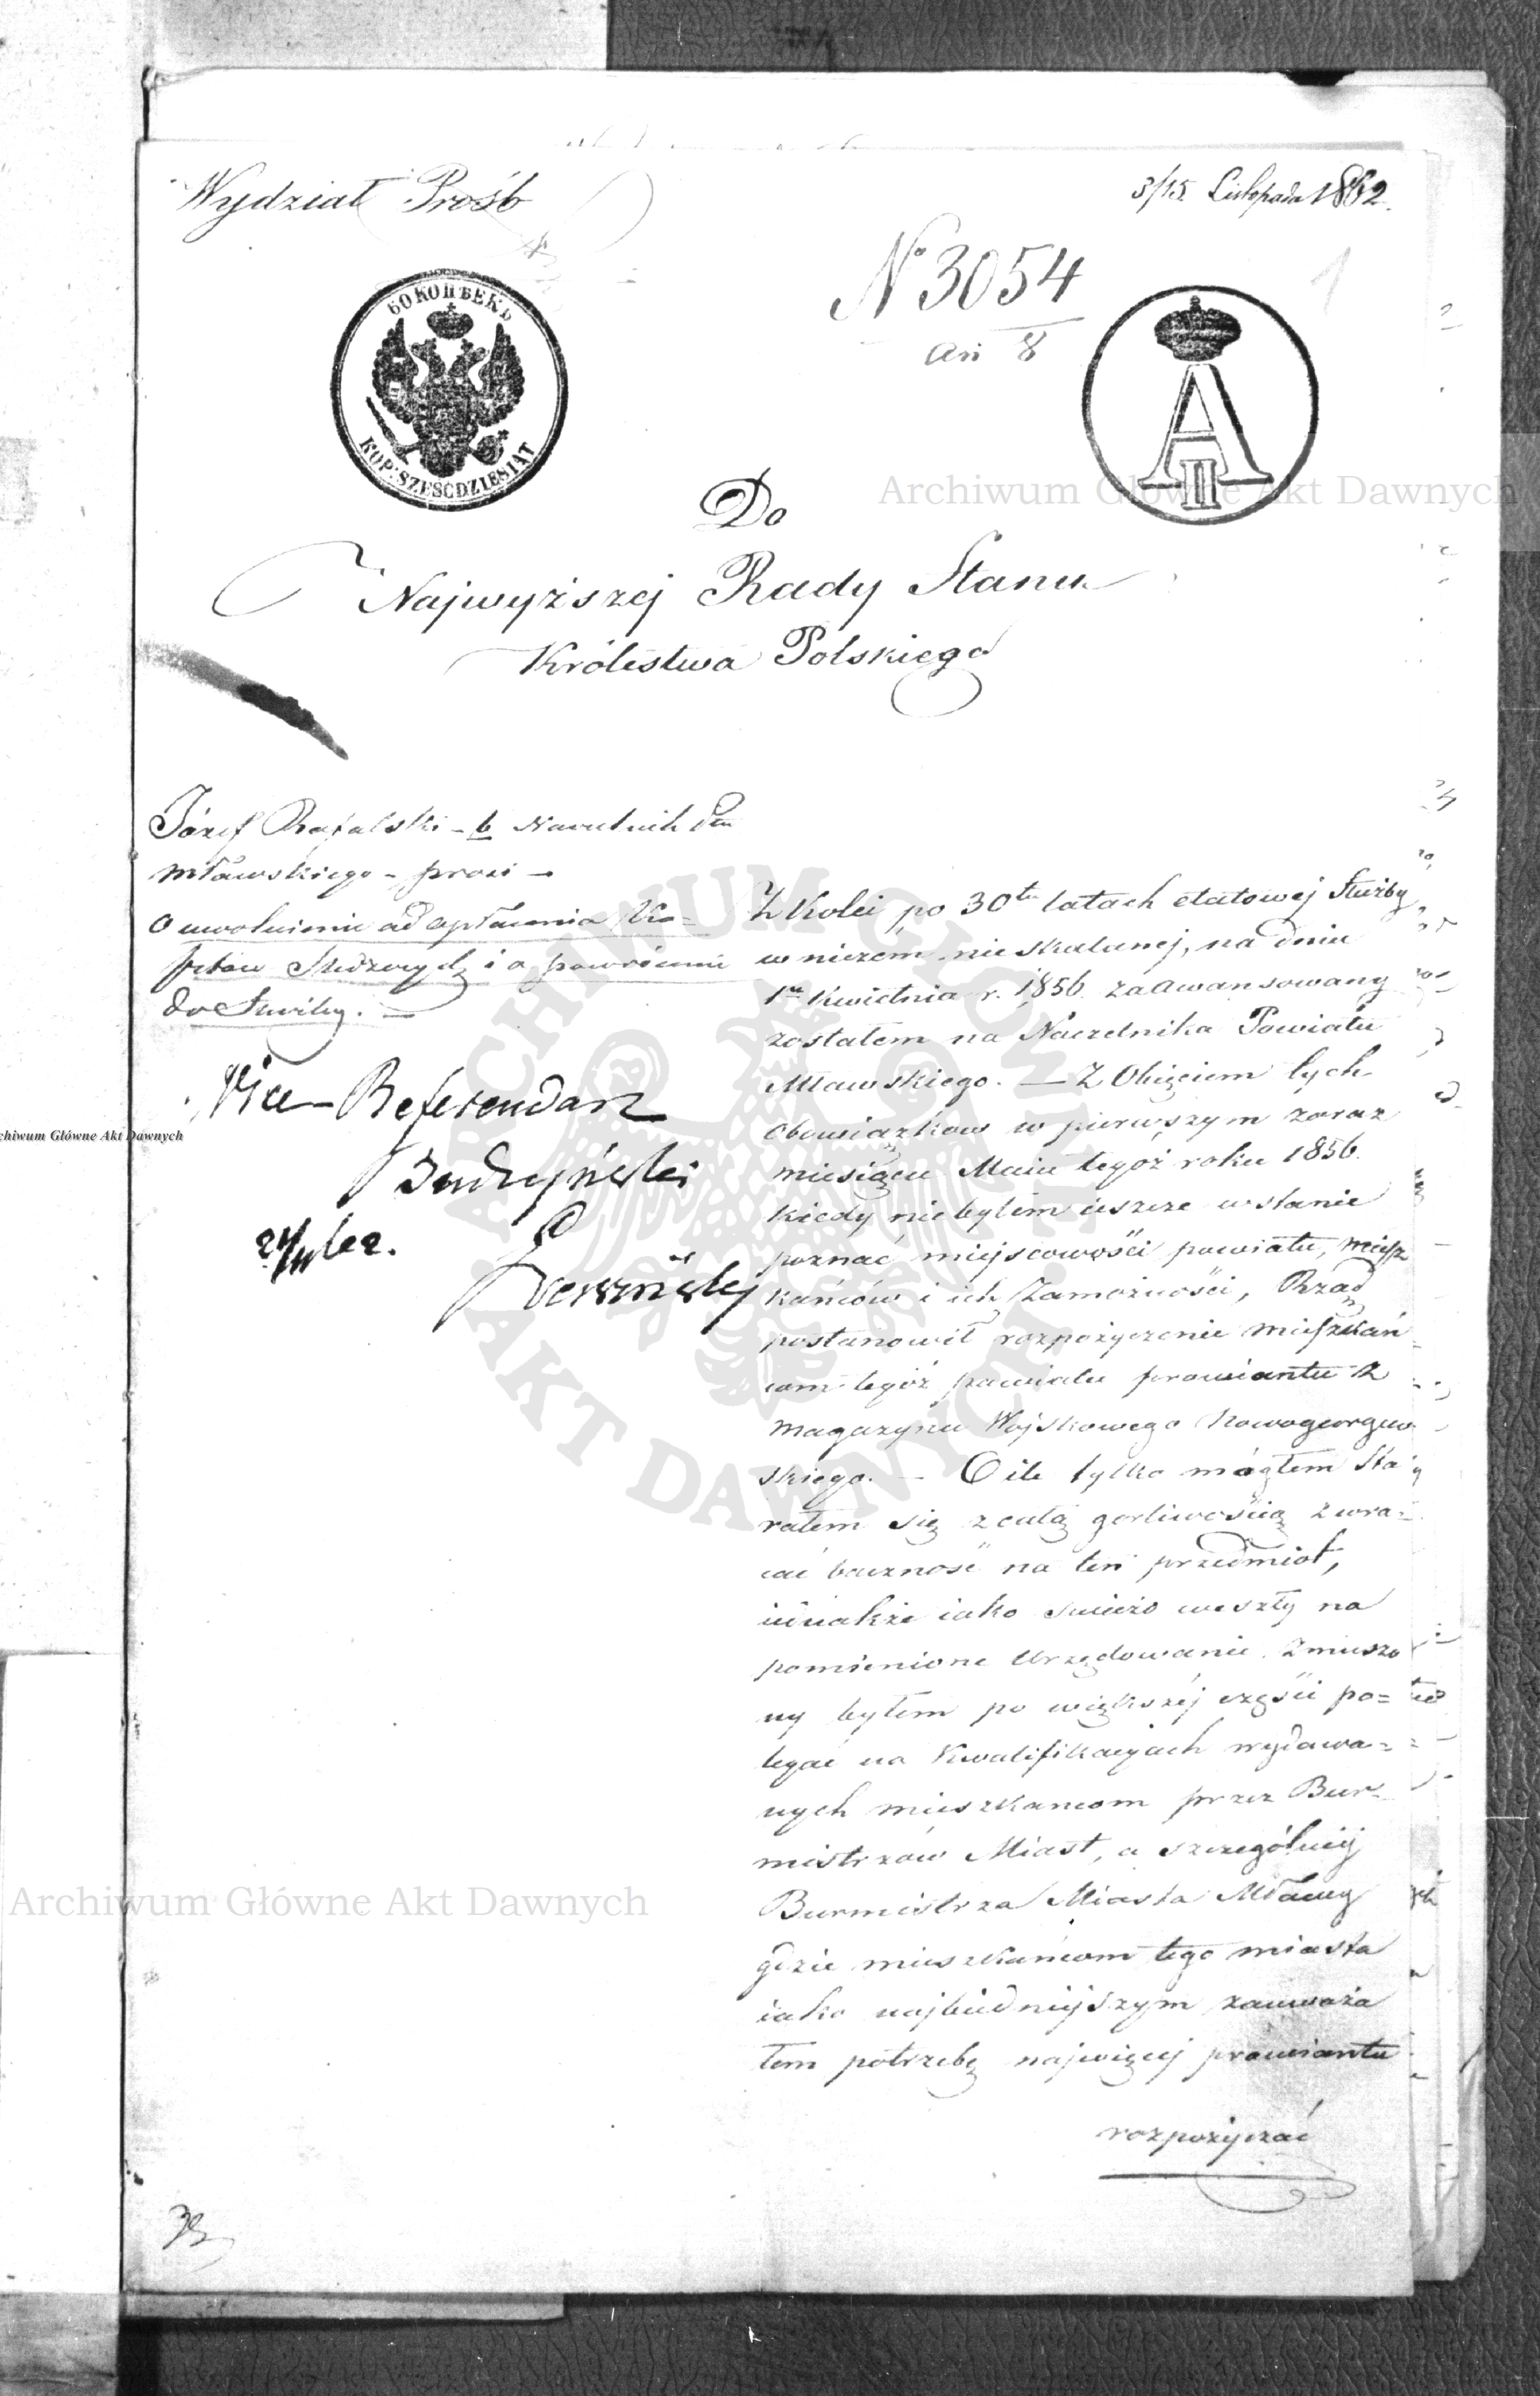 Wydział Prośb
3/15 Listopada 1862.
N 3054
8
1
60 КОПѢЕКЪ
KOP: SZEŚĆDZIESIĄT
A II
Do
Najwyższej Rady Stanu
Królestwa Polskiego
Józef Rafalski - b Naczelnik
Mławskiego - prosi -
O uwolnienie od opłacenia Ko=
sztów Śledczych i o powrócenie
do Służby. -
Vice-Referendarz
24/11 62.
Z Kolei po 30tu latach etatowej Służby
w niczem nieskalanej, na dniu
1m Kwietnia r. 1856 zaawansowany
zostałem na Naczelnika Powiatu
Mławskiego. - Z Objęciem tych
obowiązkow w pierwszym zaraz
miesiącu Maiu tegoż roku 1856.
kiedy nie byłem ieszcze wstanie
poznać miejscowości powiatu, miesz
kańców i ich Zamożności, Rząd
postanowił rozpożyczenie mieszkań
com tegóż powiatu prowiantu z
magazynu Wojskowego Nowogeorgiew
skiego. - O ile tylko mógłem sta
rałem się z całą gorliwością zwra=
cać baczność na ten przedmiot,
iednakże iako swieżo weszły na
pomienione Urzędowanie. Zmuszo
ny byłem po większéj części po=
legać na Kwalifikacyach wydawa=
nych mieszkancom przez Bur=
mistrzów Miast, a szczególniéj
Burmistrza Miasta Mławy
gdzie mieszkańcom tego miasta
iako najbiedniejszym zauważa
łem potrzebę najwięcej prowiantu
rozpożyczać
Archiwum Główne Akt Dawnych
Archiwum Główne Akt Dawnych
chiwum Główne Akt Dawnych
ARCHIWUM GŁÓWNE AKT DAWNYCH